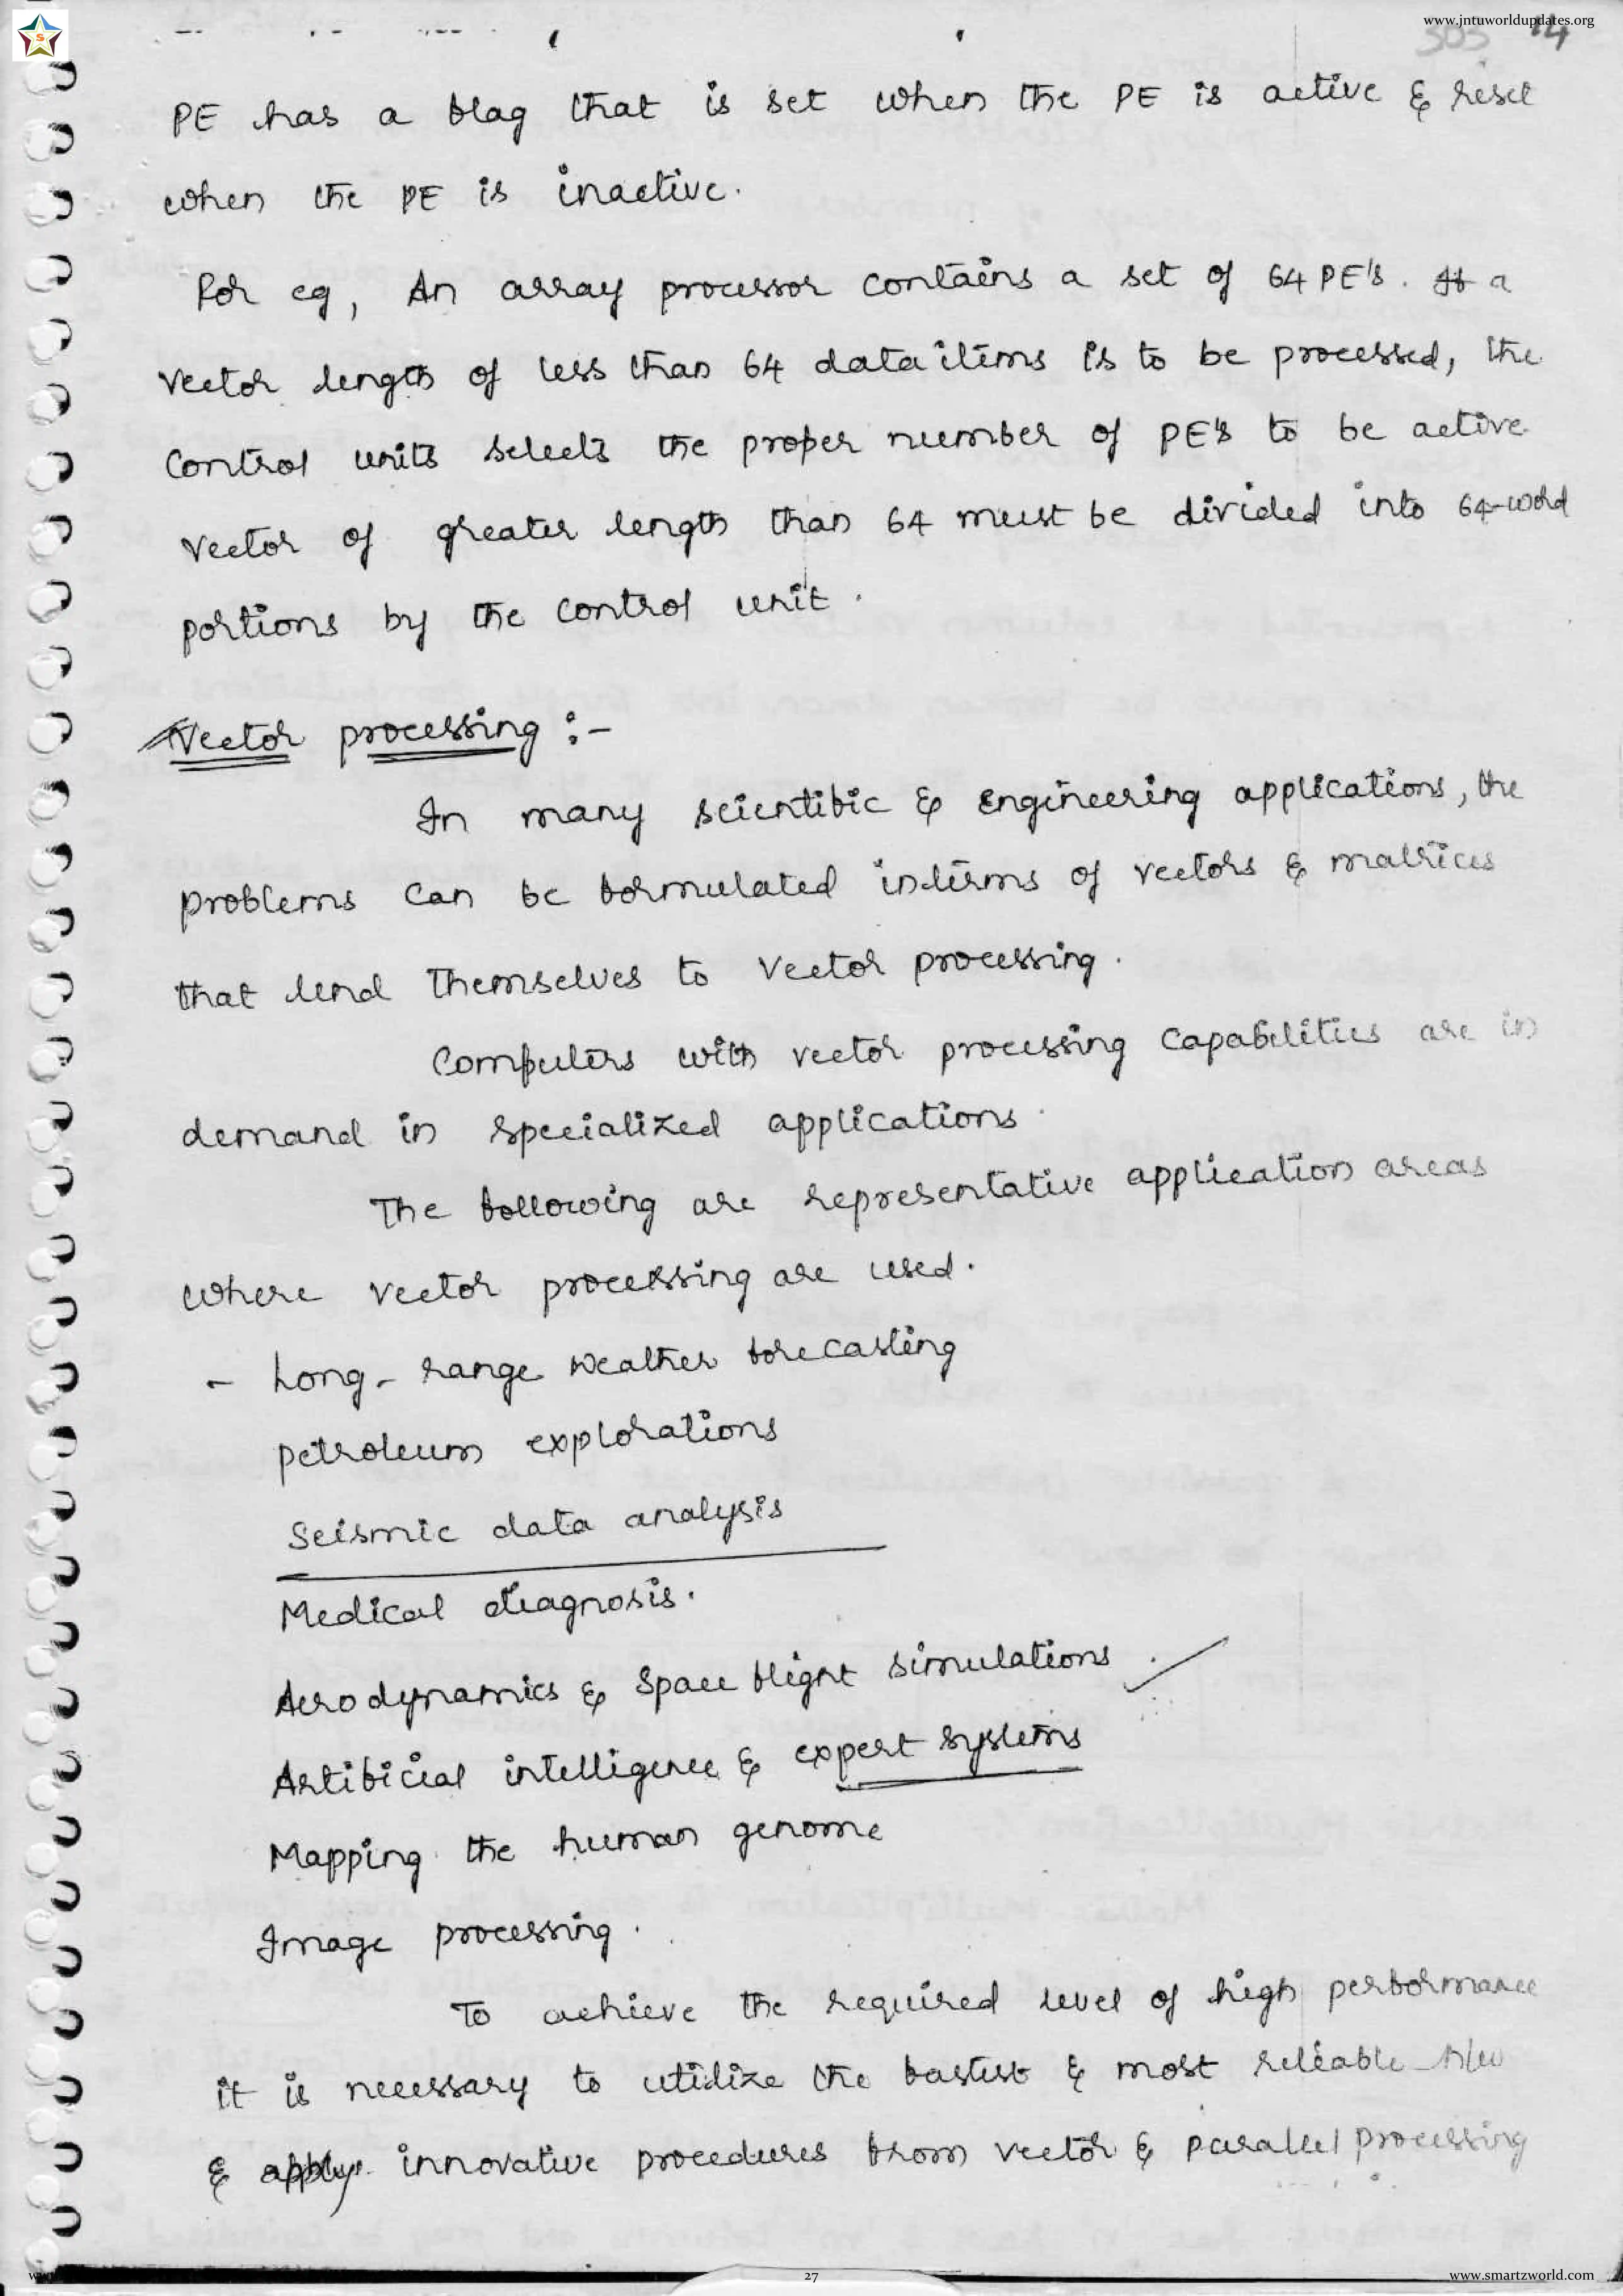 www.jntuworldupdates.org
S
305 14
PE has a flag that is set when the PE is active & reset
when the PE is inactive.
For eg, An array processor contains a set of 64 PE's. If a
vector length of less than 64 data items is to be processed, the
control units selects the proper number of PE's to be active.
vector of greater length than 64 must be divided into 64-word
portions by the control unit.
Vector processing :-
In many scientific & Engineering applications, the
problems can be formulated interms of vectors & matrices
that lend themselves to vector processing.
Computers with vector processing capabilities are in
demand in specialized applications.
The following are representative application areas
where vector processing are used.
- Long-range weather forecasting
petroleum explorations
Seismic data analysis
Medical diagnosis.
Aerodynamics & space flight simulations.
Artificial intelligence & expert systems
Mapping the human genome
Image processing.
To achieve the required level of high performance
it is necessary to utilize the fastest & most reliable H/w
& apply innovative procedures from vector & parallel processing
27
www.smartzworld.com